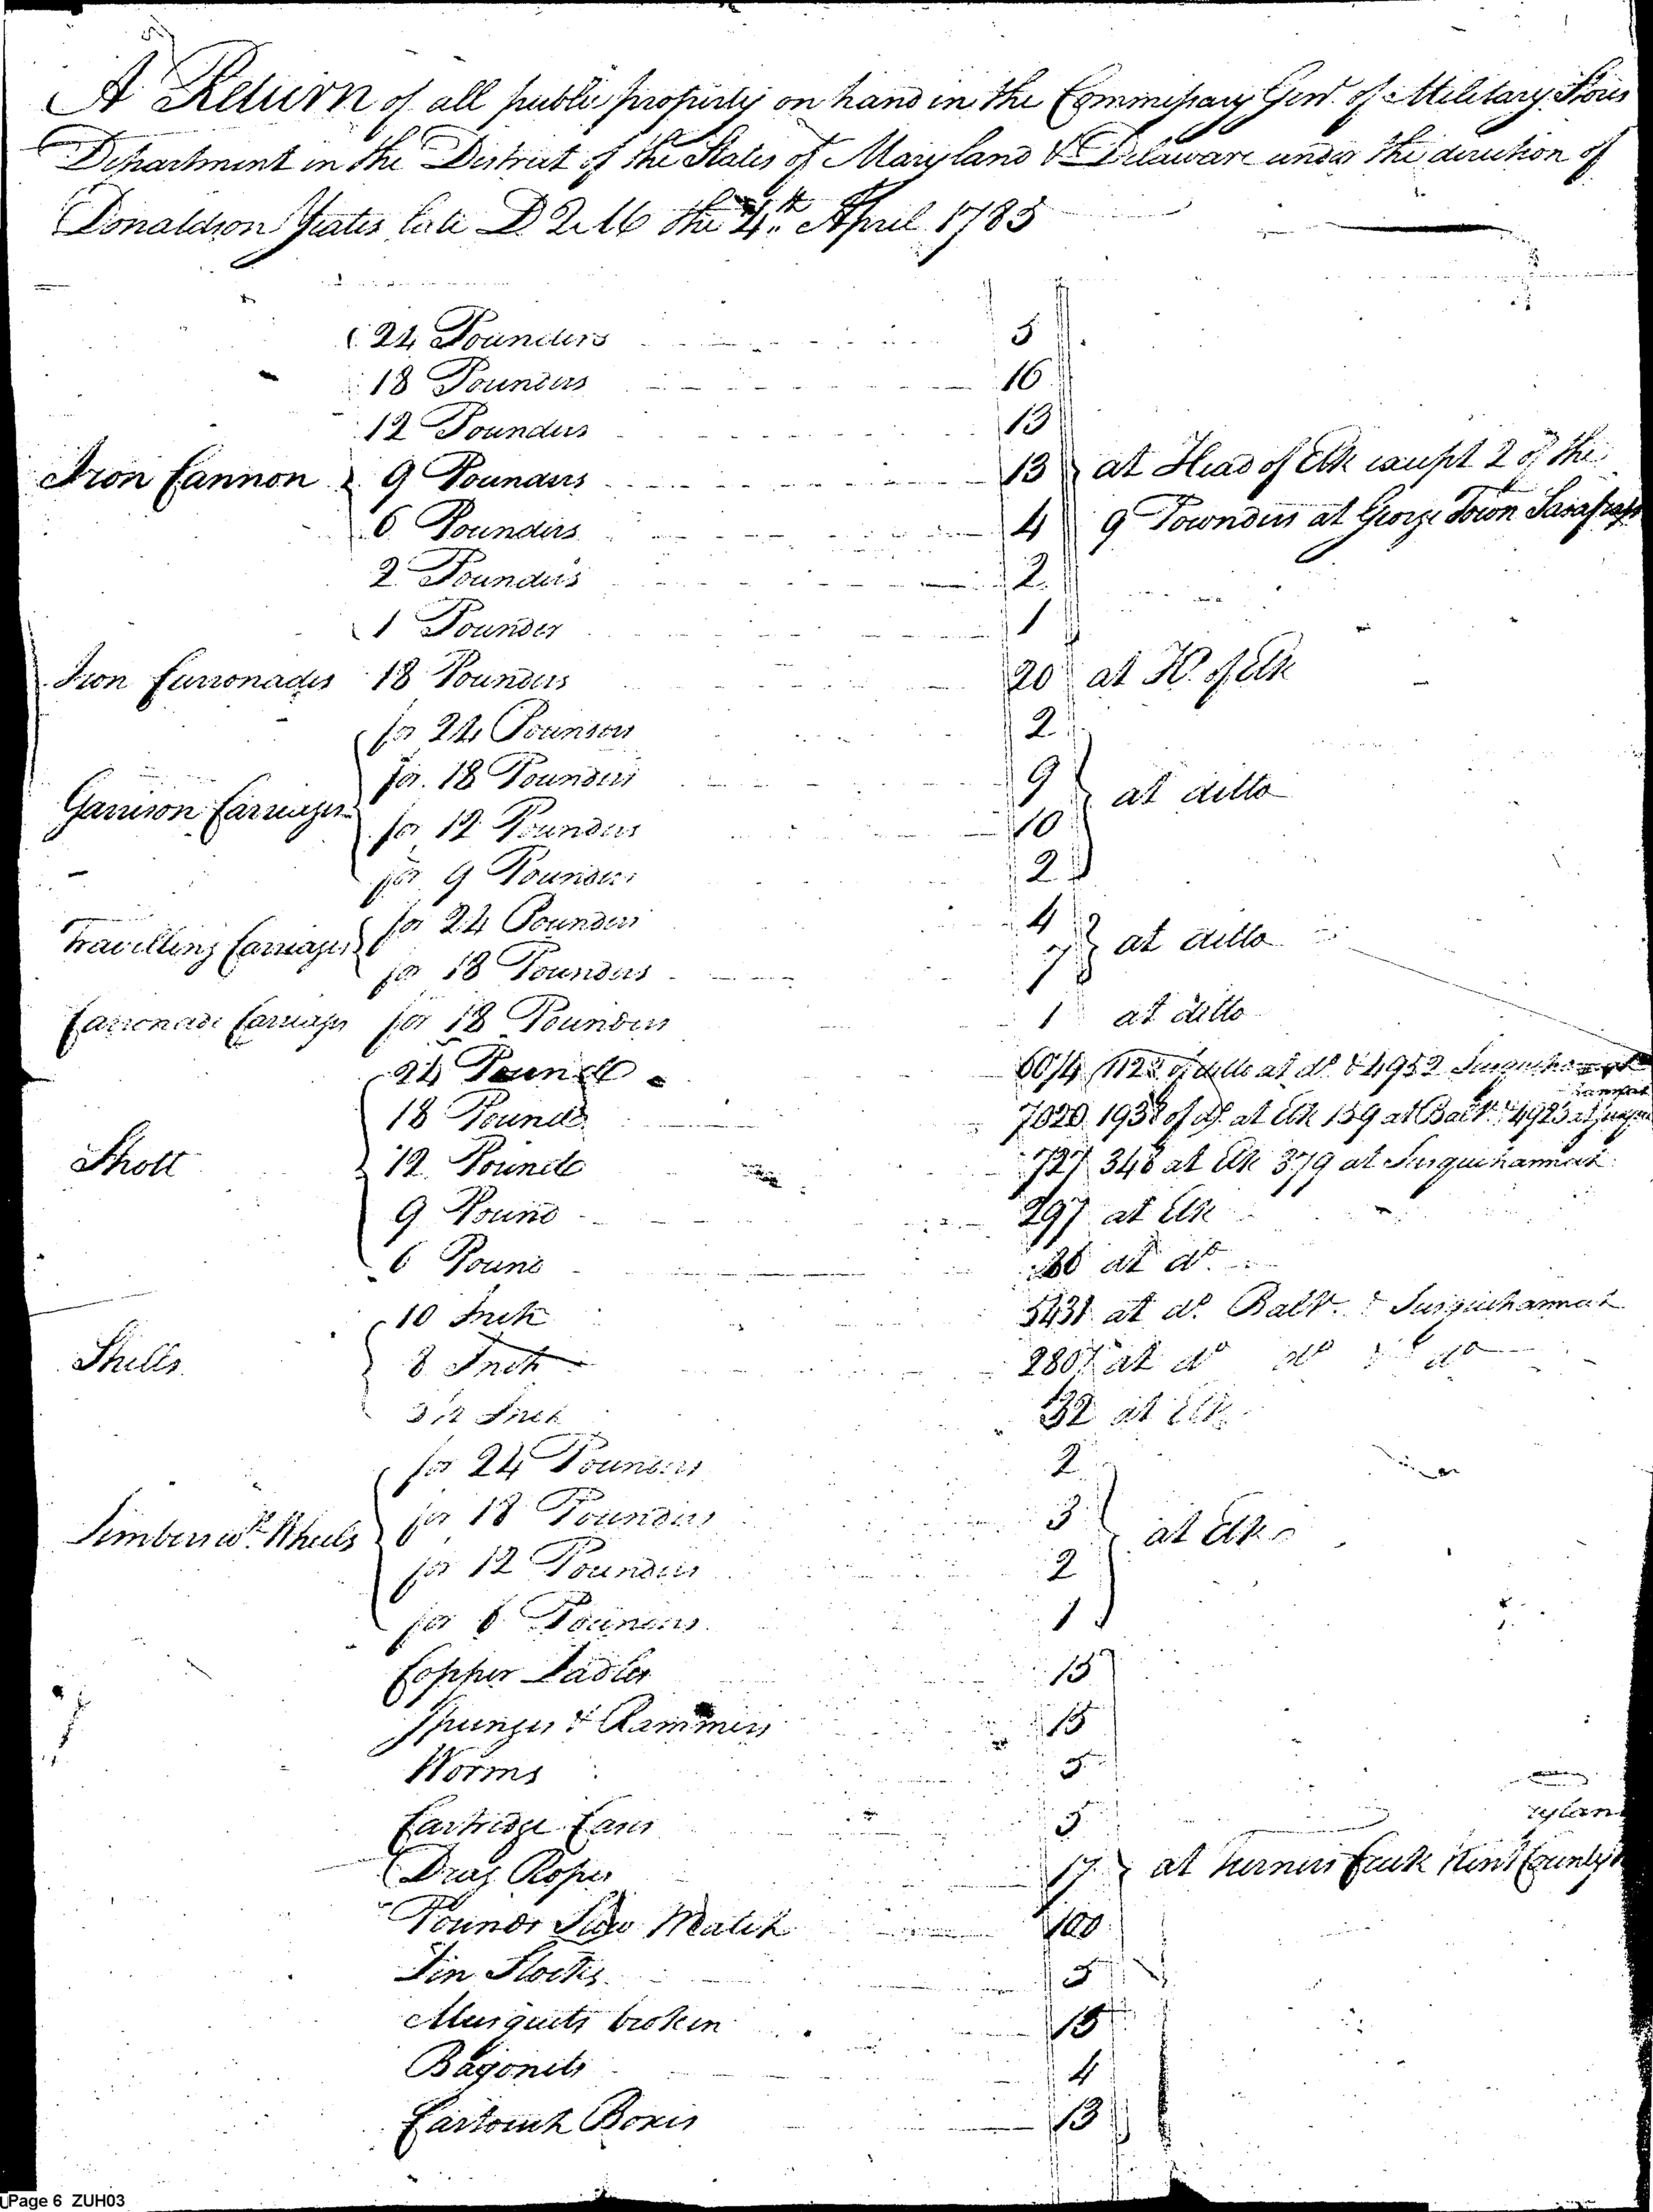 A Return of all public property on hand in the Commissary Genl. of Military Stores
Department in the District of the States of Maryland & Delaware under the direction of
Donaldson Yeates late D Q M the 4th April 1785
24 Pounders 5
18 Pounders 16
12 Pounders 13
Iron Cannon 9 Pounders 13 at Head of Elk except 2 of the
6 Pounders 4 9 Pownders at George Town Sasafrass
2 Pounders 2
1 Pounder 1
Iron Curronades 18 Pounders 20 at Hd. of Elk
for 24 Pounders 2
Garrison Carriages for 18 Pounders 9 at ditto
for 12 Pounders 10
for 9 Pounders 2
Travelling Carriages for 24 Pounders 4 at ditto
for 18 Pounders 7
Carronade Carriages for 18 Pounders 1 at ditto
24 Pound 6074 1122 of ditto at do. & 4952 Susquehannah
18 Pound 7020 1938 of do. at Elk 159 at Balt. & 4923 at Susquehannah
Shott 12 Pound 727 348 at Elk 379 at Susquehannah
9 Pound 297 at Elk
6 Pound 26 at do.
10 Inch 5431 at do. Balt. & Susquehannah
Shells 8 Inch 2807 at do do & do
5 1/2 Inch 32 at Elk
for 24 Pounders 2
Limbers wth. Wheels for 18 Pounders 3 at Elk
for 12 Pounders 2
for 6 Pounders 1
Copper Ladles 15
Spunges & Rammers 15
Worms 5
Cartridge Cases 5
Drag Ropes 17 at Turners Creek Kent County
Pounds Slow Match 100
Lin Stocks 5
Musquets broken 15
Bayonets 4
Cartouch Boxes 13
Page 6 ZUH03